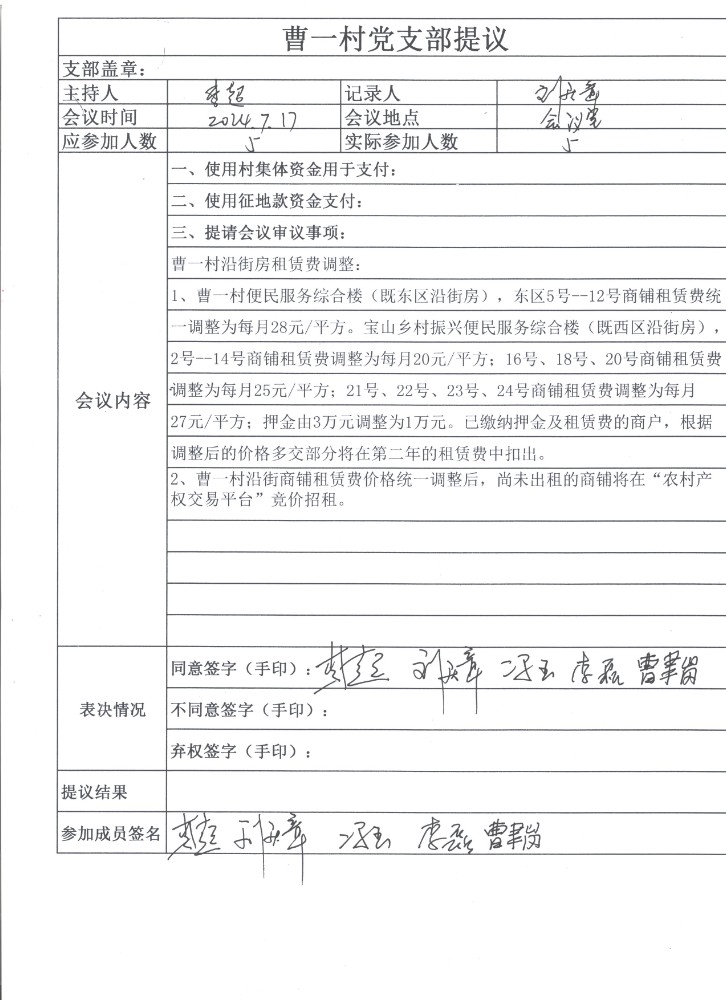 曹一村党支部提议
支部盖章：
主持人 李超 记录人
会议时间 2024.7.17 会议地点 会议室
应参加人数 5 实际参加人数 5
会议内容
一、使用村集体资金用于支付：
二、使用征地款资金支付：
三、提请会议审议事项：
曹一村沿街房租赁费调整：
1、曹一村便民服务综合楼（既东区沿街房），东区5号--12号商铺租赁费统
一调整为每月28元/平方。宝山乡村振兴便民服务综合楼（既西区沿街房），
2号--14号商铺租赁费调整为每月20元/平方；16号、18号、20号商铺租赁费
调整为每月25元/平方；21号、22号、23号、24号商铺租赁费调整为每月
27元/平方；押金由3万元调整为1万元。已缴纳押金及租赁费的商户，根据
调整后的价格多交部分将在第二年的租赁费中扣出。
2、曹一村沿街商铺租赁费价格统一调整后，尚未出租的商铺将在“农村产
权交易平台”竞价招租。
表决情况
同意签字（手印）： 冯玉 李磊
不同意签字（手印）：
弃权签字（手印）：
提议结果
参加成员签名 冯玉 李磊